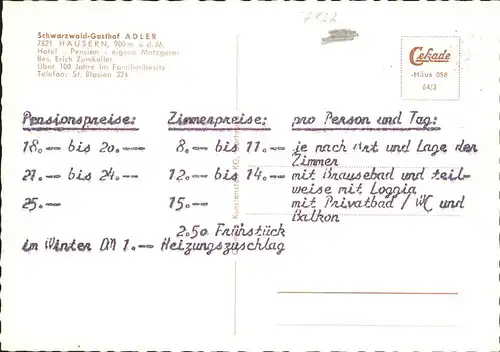 Schwarzwald-Gasthof ADLER
7821 HÄUSERN, 900 m ü. d. M.
Hotel - Pension - eigene Metzgerei
Bes. Erich Zumkeller
Über 100 Jahre im Familienbesitz
Telefon: St. Blasien 324
Cekade
-Häus 058
64/3
Pensionspreise: Zimmerpreise: pro Person und Tag:
18.— bis 20.— 8.— bis 11.— je nach Art und Lage der
Zimmer
21.— bis 24.— 12.— bis 14.— mit Brausebad und teil-
weise mit Loggia
25.— 15.— mit Privatbad / WC und
Balkon
2.50 Frühstück
im Winter DM 1.— Heizungszuschlag